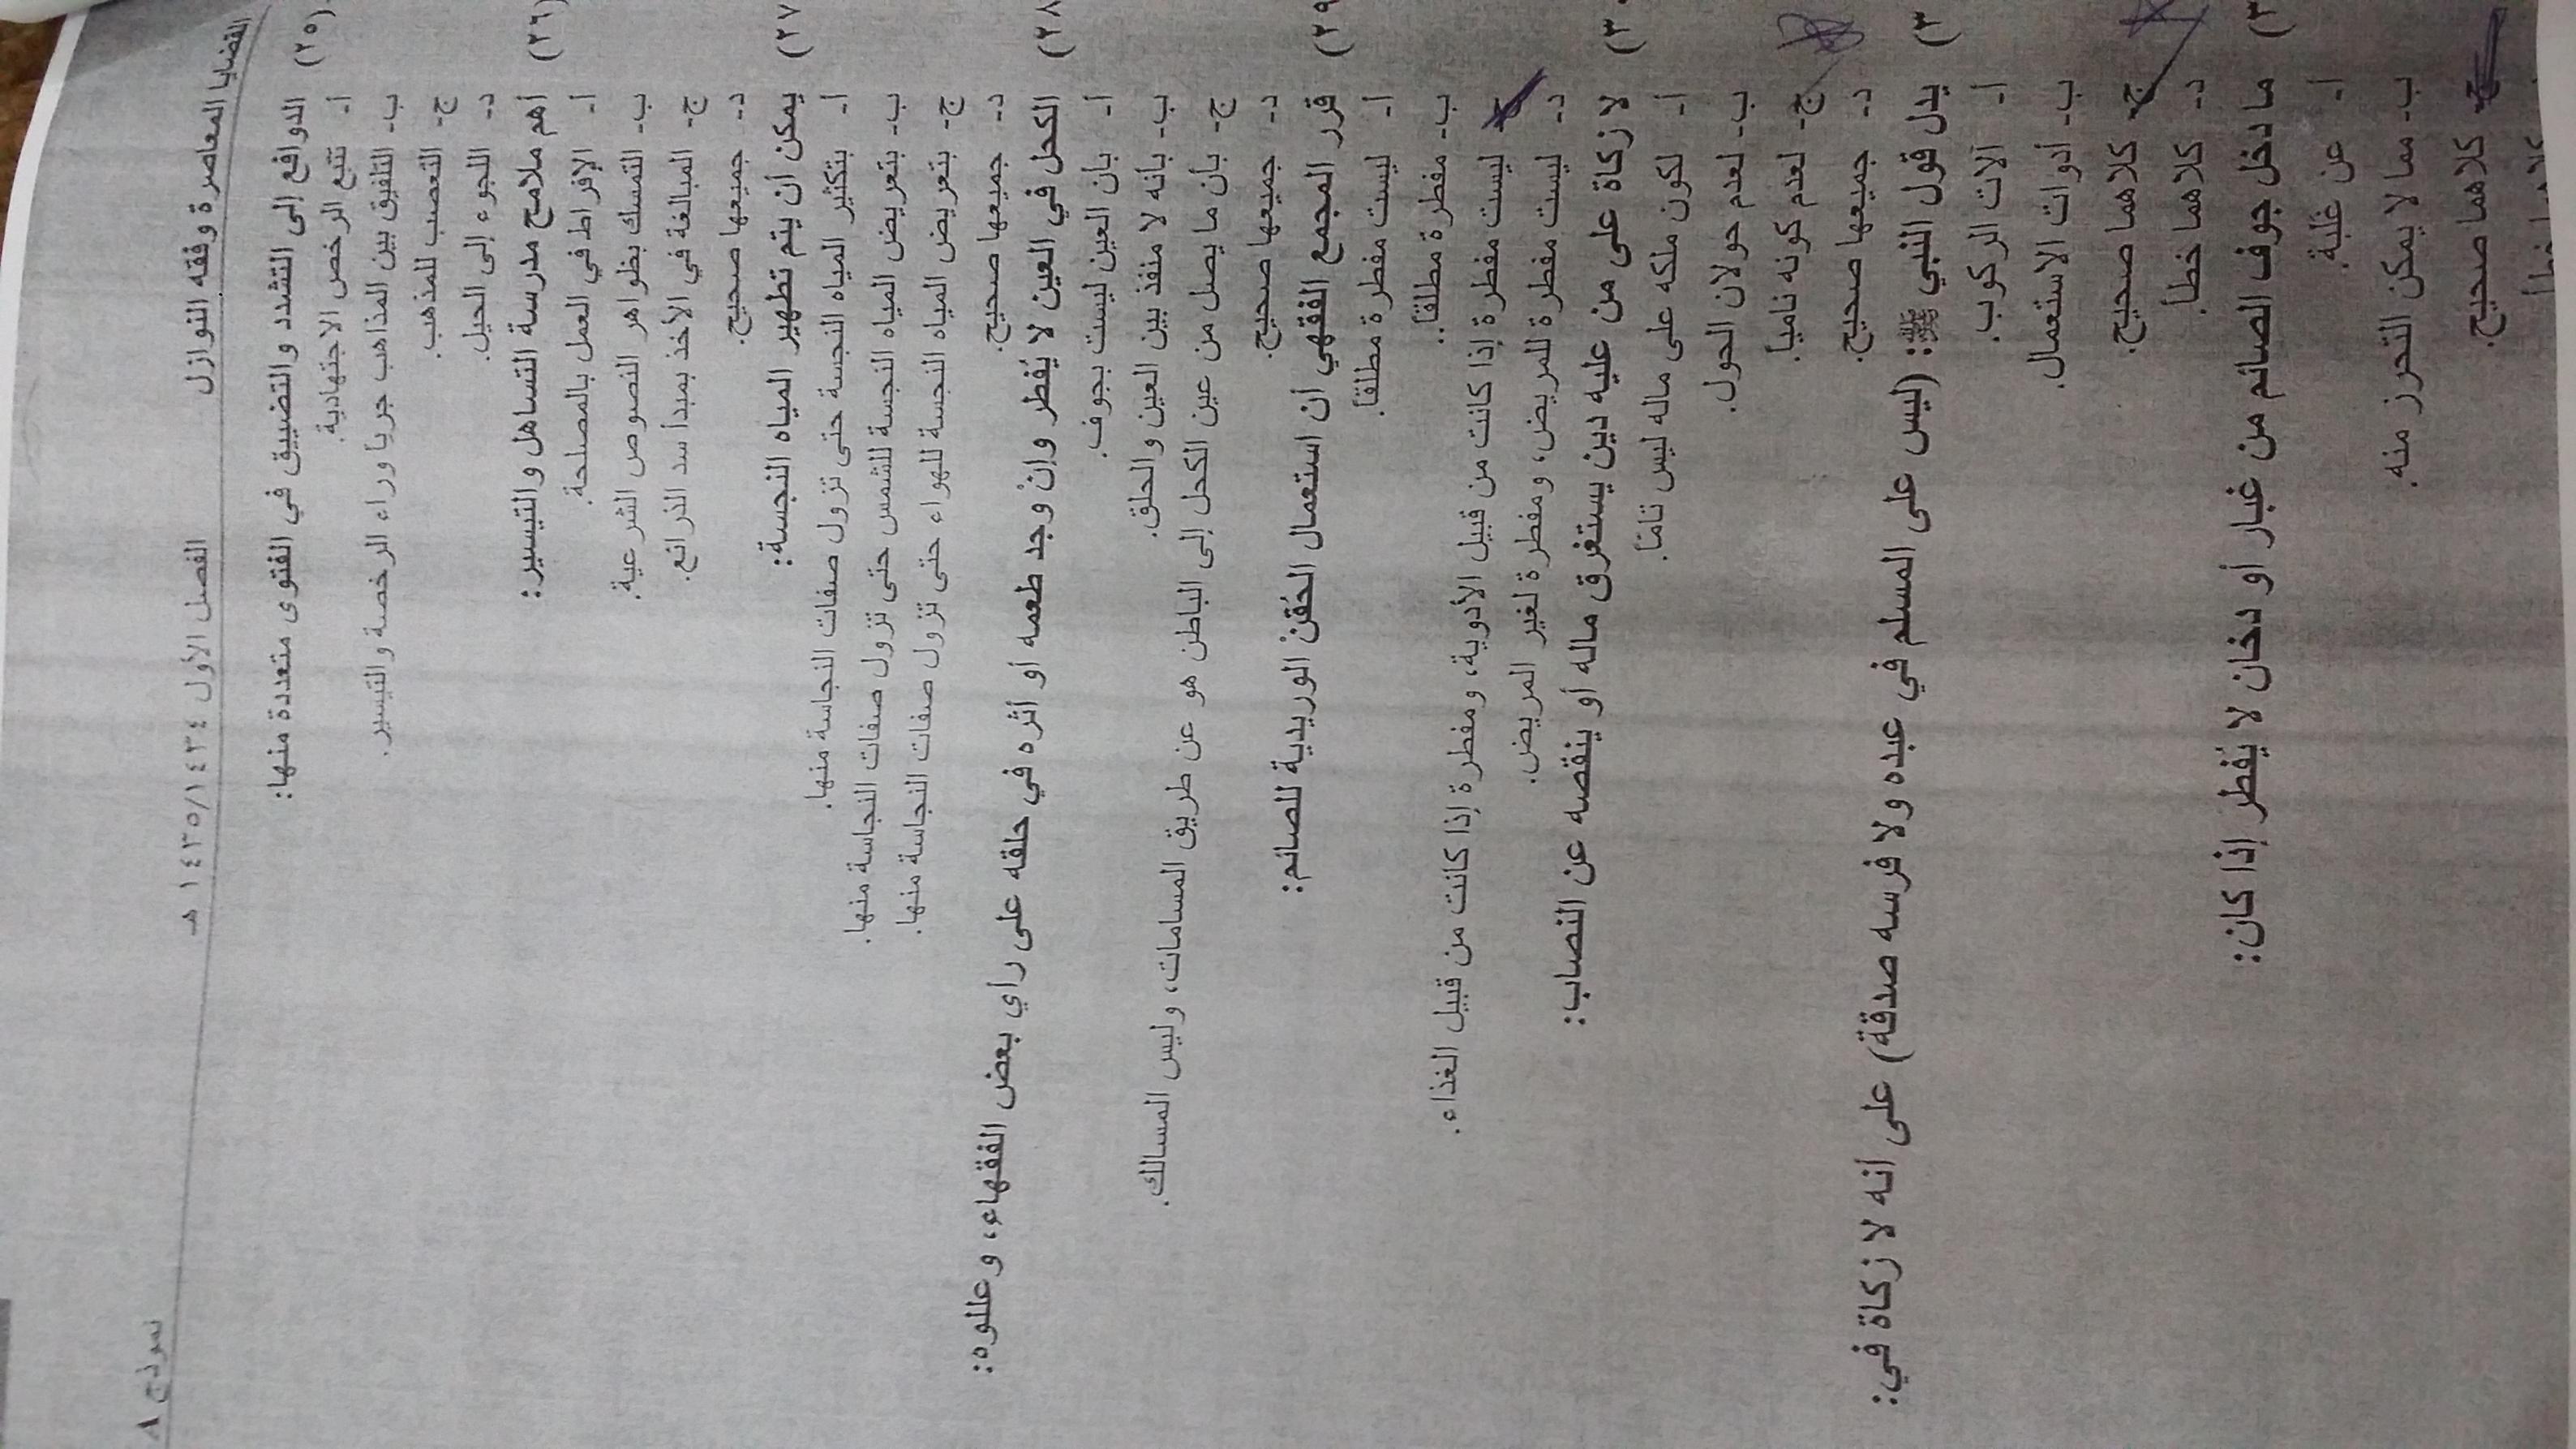 القضايا المعاصرة وفقه النوازل الفصل الأول ١٤٣٤/١٤٣٥ هـ نموذج ٨
٢٥) الدوافع إلى التشدد والتضييق في الفتوى متعددة منها:
أ- تتبع الرخص الاجتهادية.
ب- التلفيق بين المذاهب جريا وراء الرخصة والتيسير.
ج- التعصب للمذهب.
د- اللجوء إلى الحيل.
٢٦) أهم ملامح مدرسة التساهل والتيسير:
أ- الإفراط في العمل بالمصلحة.
ب- التمسك بظواهر النصوص الشرعية.
ج- المبالغة في الأخذ بمبدأ سد الذرائع.
د- جميعها صحيح.
٢٧) يمكن أن يتم تطهير المياه النجسة:
أ- بتكثير المياه النجسة حتى تزول صفات النجاسة منها.
ب- بتعريض المياه النجسة للشمس حتى تزول صفات النجاسة منها.
ج- بتعريض المياه النجسة للهواء حتى تزول صفات النجاسة منها.
د- جميعها صحيح.
٢٨) الكحل في العين لا يُفطر وإن وجد طعمه أو أثره في حلقه على رأي بعض الفقهاء، وعللوه:
أ- بأن العين ليست بجوف.
ب- بأنه لا منفذ بين العين والحلق.
ج- بأن ما يصل من عين الكحل إلى الباطن هو عن طريق المسامات، وليس المسالك.
د- جميعها صحيح.
٢٩) قرر المجمع الفقهي أن استعمال الحُقن الوريدية للصائم:
أ- ليست مفطرة مطلقاً.
ب- مفطرة مطلقاً..
ج- ليست مفطرة إذا كانت من قبيل الأدوية، ومفطرة إذا كانت من قبيل الغذاء.
د- ليست مفطرة للمريض، ومفطرة لغير المريض.
٣٠) لا زكاة على من عليه دين يستغرق ماله أو ينقصه عن النصاب:
أ- لكون ملكه على ماله ليس تامّاً.
ب- لعدم حولان الحول.
ج- لعدم كونه نامياً.
د- جميعها صحيح.
٣) يدل قول النبي ﷺ: (ليس على المسلم في عبده ولا فرسه صدقة) على أنه لا زكاة في:
أ- آلات الركوب.
ب- أدوات الاستعمال.
ج- كلاهما صحيح.
د- كلاهما خطأ.
٣) ما دخل جوف الصائم من غبار أو دخان لا يُفطر إذا كان:
أ- عن غلبة.
ب- مما لا يمكن التحرز منه.
ج- كلاهما صحيح.